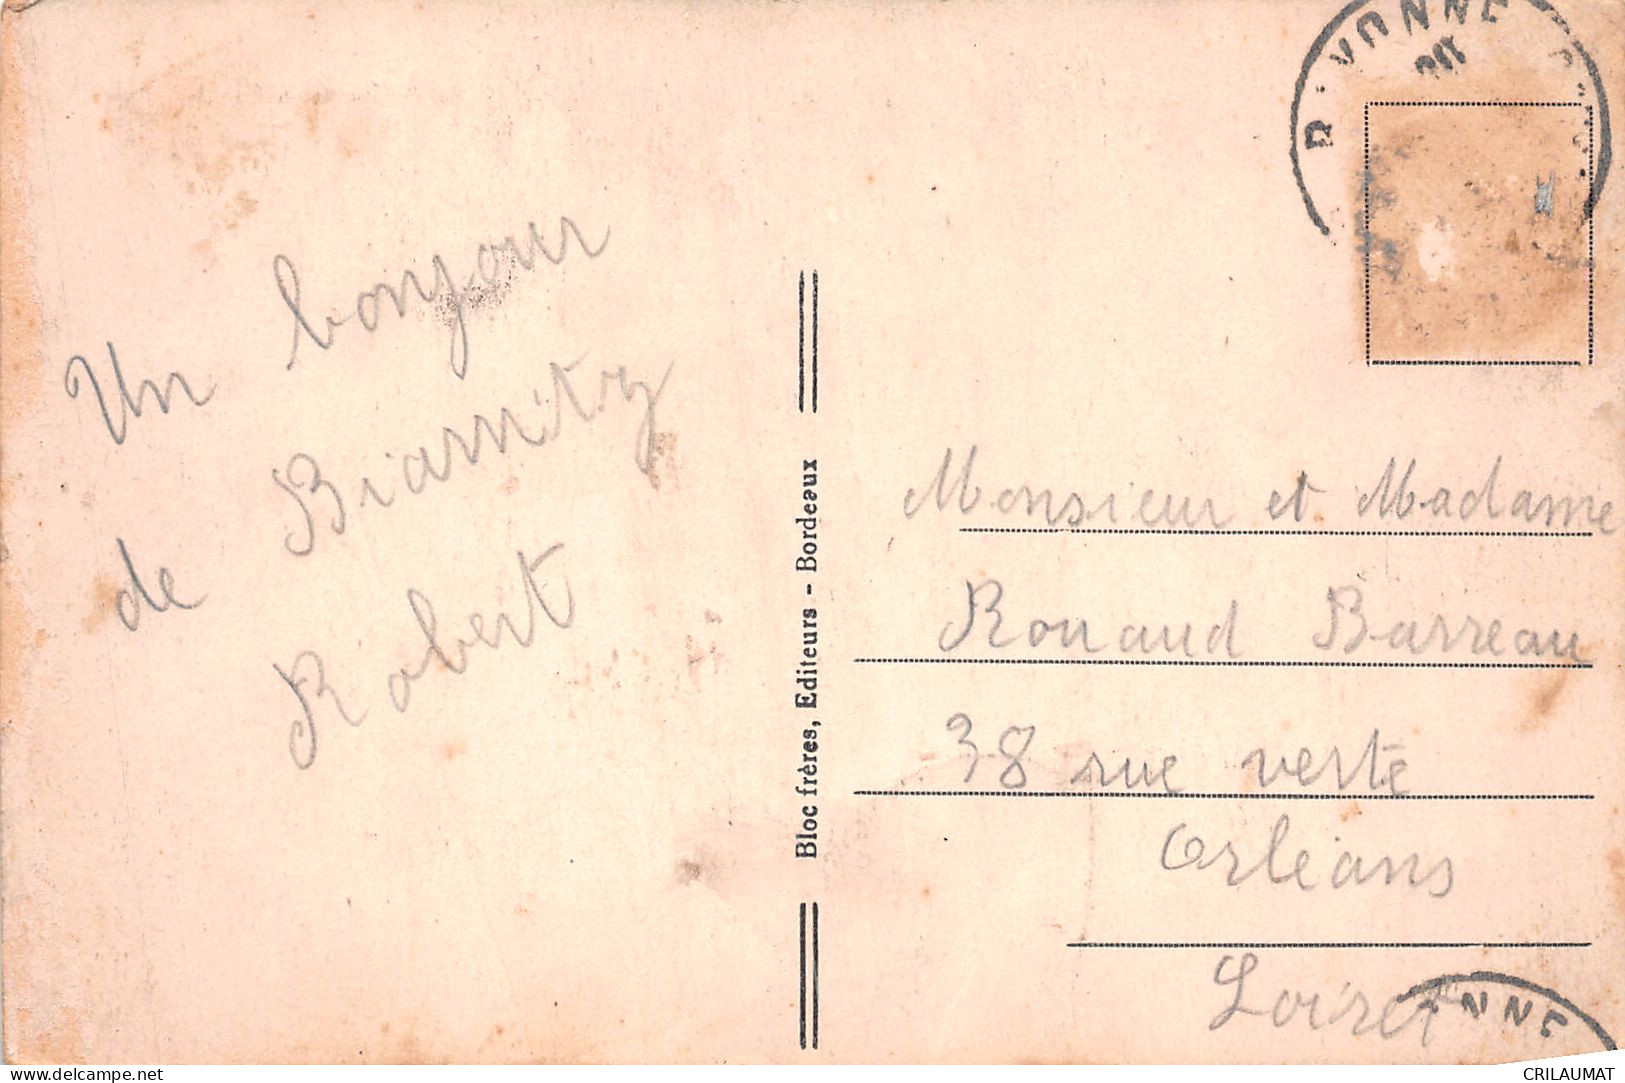 Un bonjour
de Biarritz
Robert
Bloc frères, Editeurs - Bordeaux
Monsieur et Madame
Rouaud Barreau
38 rue verte
Orléans
Loiret
delcampe.net
CRILAUMAT